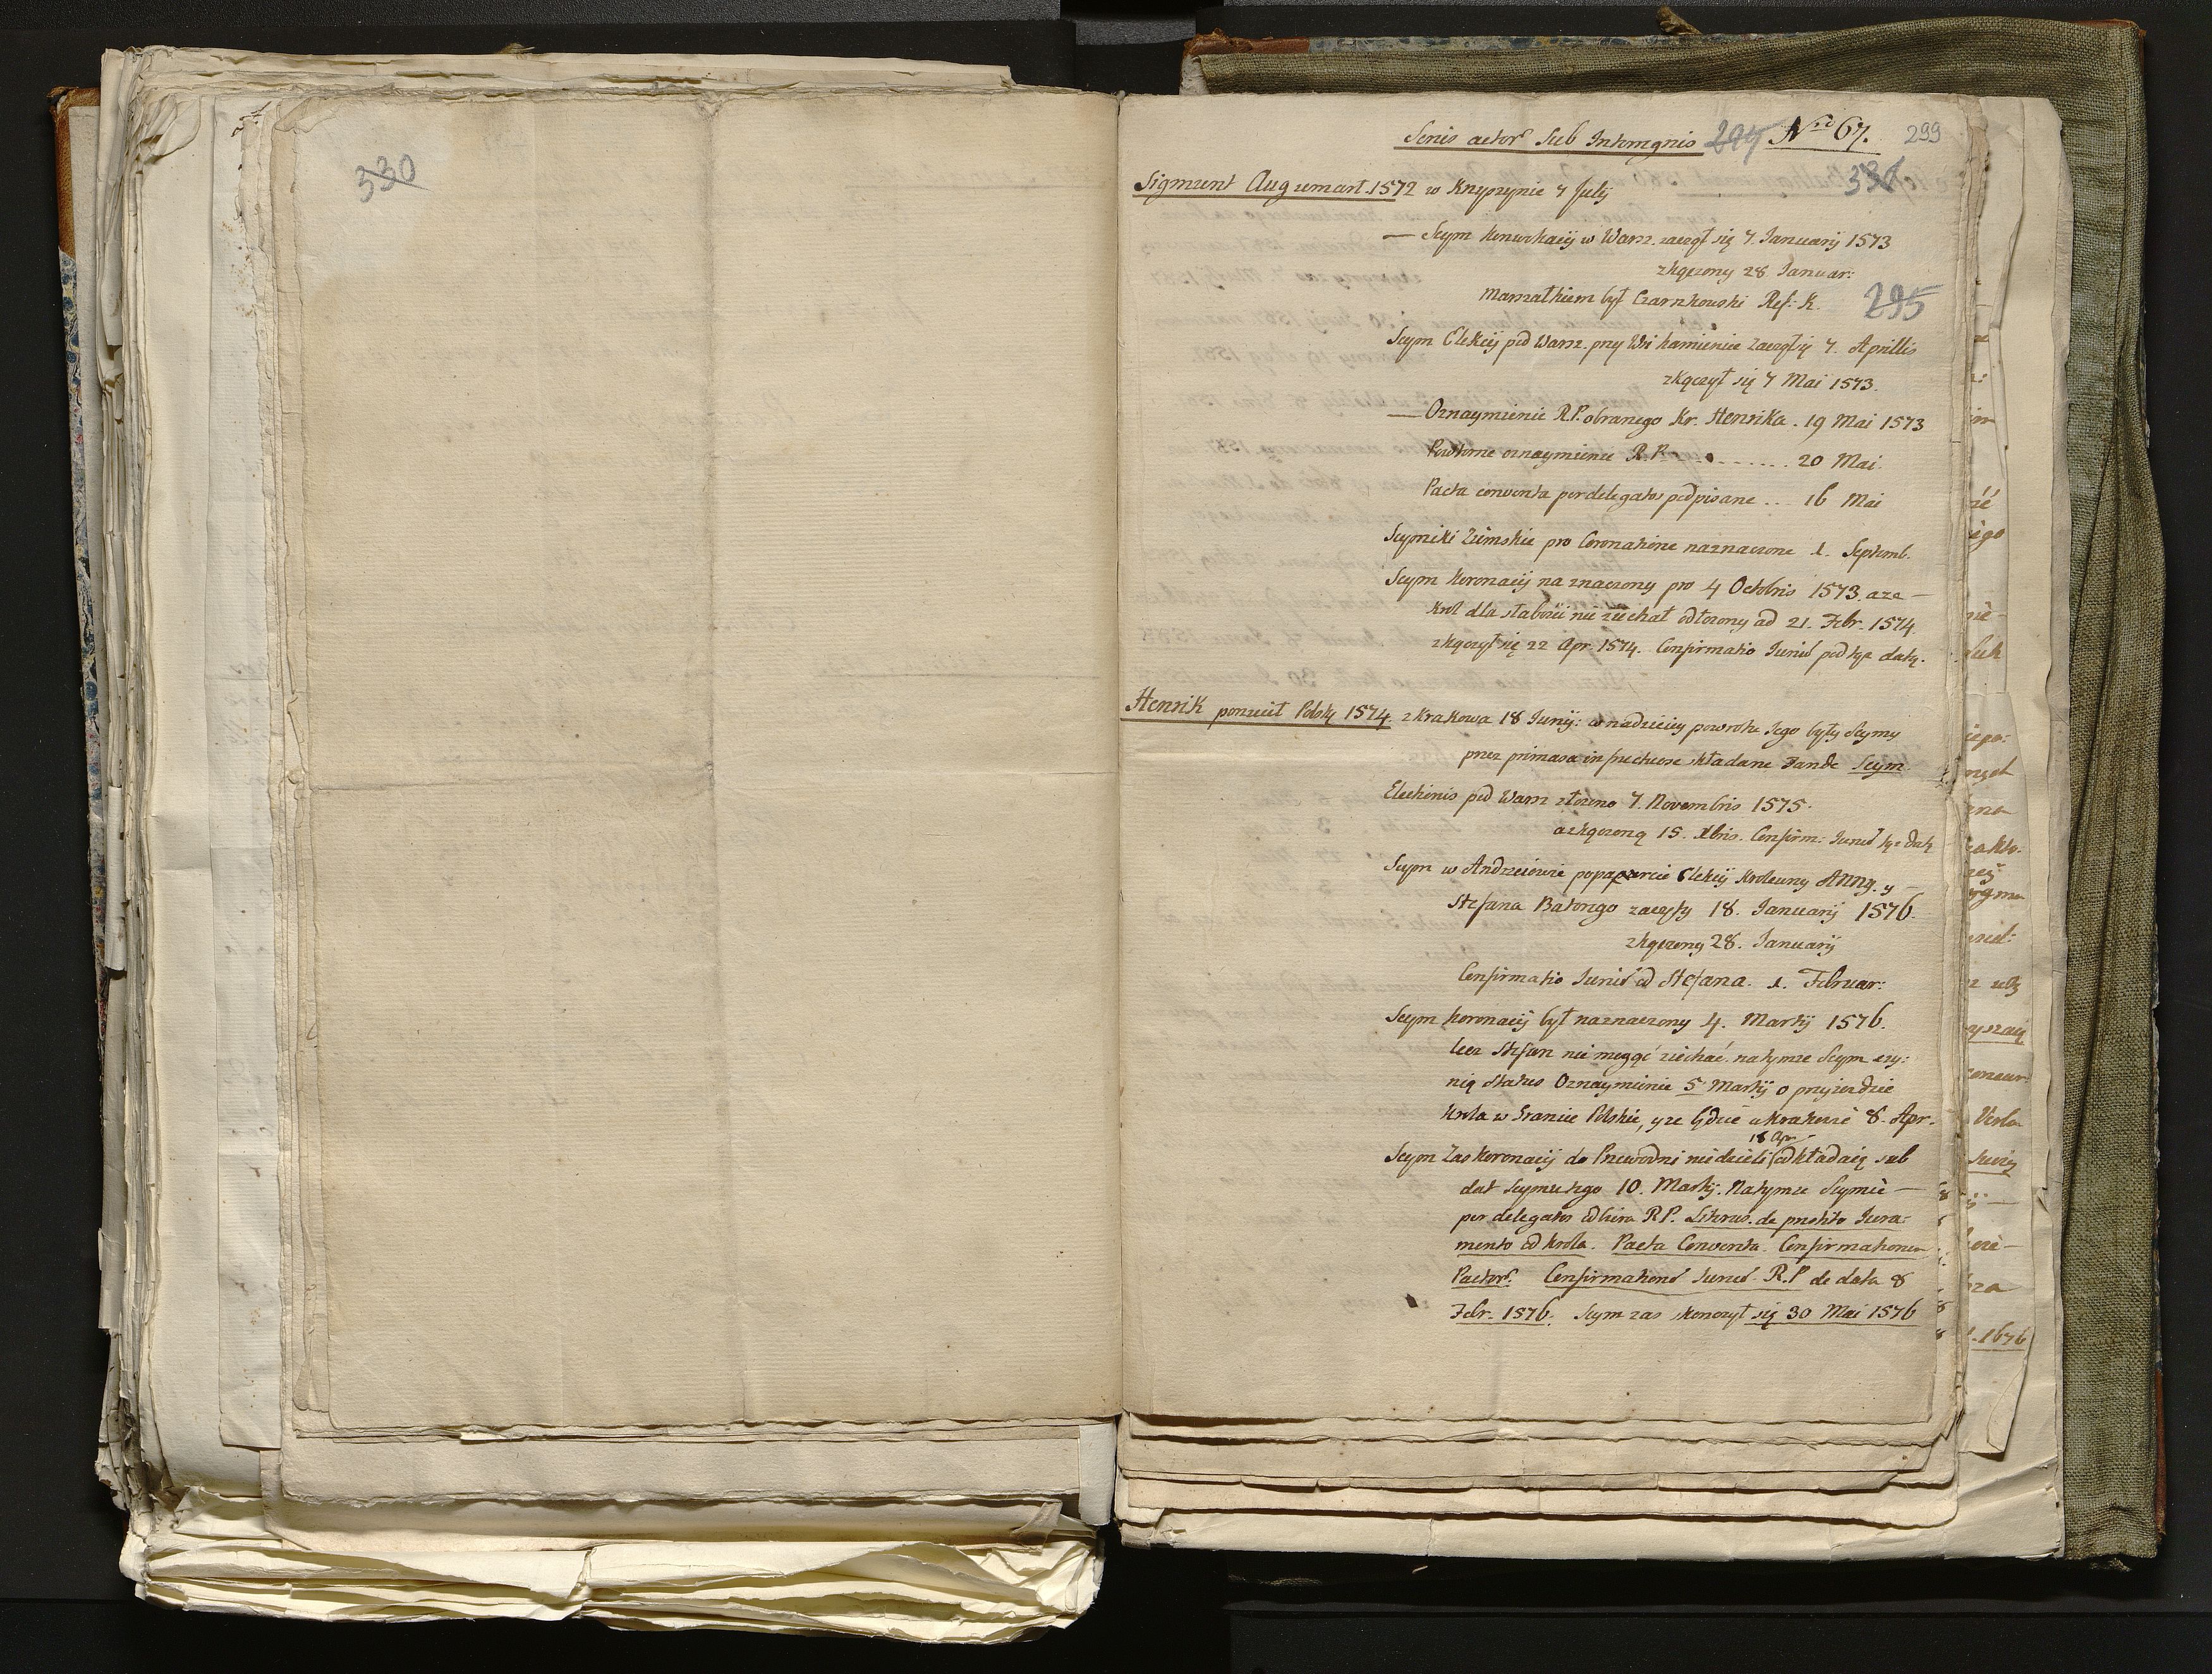 330
Series actor. Sub Interregnis 294 Nro 67. 299
331
Sigmunt Aug umart. 1572 w Knyszynie 7 Julij
— Seym konwokacij w Warsz. zaczoł się 7. Januarij 1573
zkączony 28 Januar:
Marszałkiem był Czarnkowski Ref: K.
295
Seym Elekcij pod Warsz. przy Wsi kamieniec zaczoł się 7. Aprillis
zkączył się 7 Mai 1573.
— Oznaymienie R.P. obranego Kr. Henrika . 19 Mai 1573
Powtorne oznaymienie R.P. ........ 20 Mai.
Pacta conventa per delegatos podpisane ... 16 Mai
Seymiki Ziemskie pro Coronatione naznaczone 1. Septemb.
Seym koronacij naznaczony pro 4 Octobris 1573. aze —
krol dla słabosci nie ziechał odłozony ad 21. Febr. 1574.
zkączył się 22 Apr. 1574. Confirmatio Jurium pod tęz datą.
Henrik porzucił Polskę 1574. z Krakowa 18 Junij: w nadzieiey powrotu Jego były Seymy
przez primasa infructuose składane Tande Seym
Electionis pod Warsz złozono 7. Novembris 1575.
a zkączoną 15. Xbris. Confirm: Jurium tąz datą
Seym w Andrzeiowie popaparcie Elekcij Krolewny ANNY. y —
Stefana Batorego zaczęty 18. Januarij 1576.
zkączony 28. Januarij
Confirmatio Jurium od Stefana. 1. Februar:
Seym koronacij był naznaczony 4. Martij 1576.
lecz Stefan nie mogąć ziechać. natymze Seym czy:
nią Status Oznaymienie 5 Martij o przyiezdzie
Krola w Granice Polskie, yze będzie w Krakowie 8. Apr.
18 Apr —
Seym Zas koronacij do Przewodni niedzieli odkładaią sub
dat Seymu tego 10. Martij. Natymze Seymie —
per delegatos odbiera R.P. Literas. de prestito Jura:
mento od krola. Pacta Conventa. Confirmationem
Pactor. Confirmationem Jurium R.P de data 8
Febr. 1576. Seym zas skonczył się 30 Mai 1576